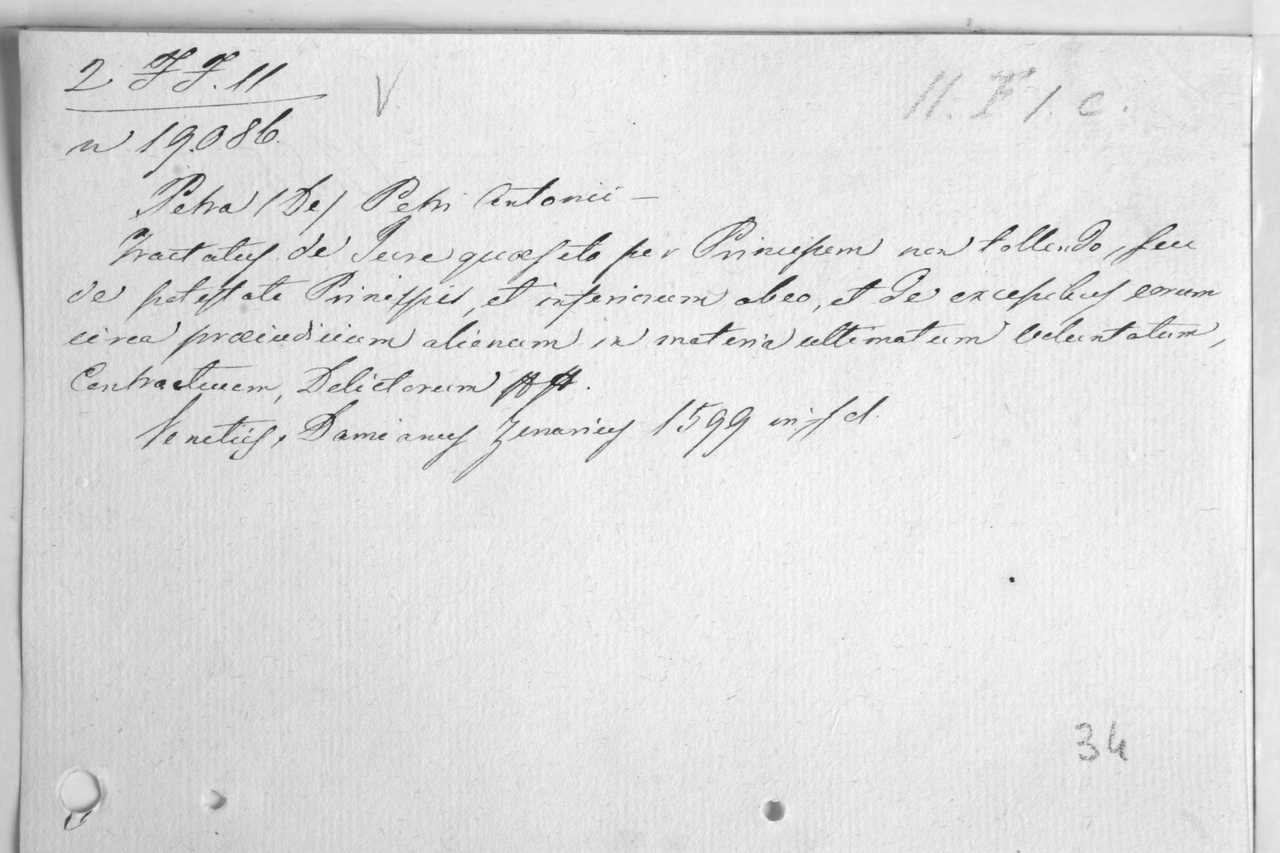 2 FF. 11
V
11. F 1. c.
n 19.086.
Petra (De) Petri Antonii —
Tractatus de Jure quaesito per Principem non tollendo, seu
de potestate Principis, et inferiorum ab eo, et de excessibus eorum
circa praeiudicium alienum in materia ultimatum voluntatum,
Contractuum, Delictorum
Venetiis, Damianus Zenarius 1599 in f d.
34